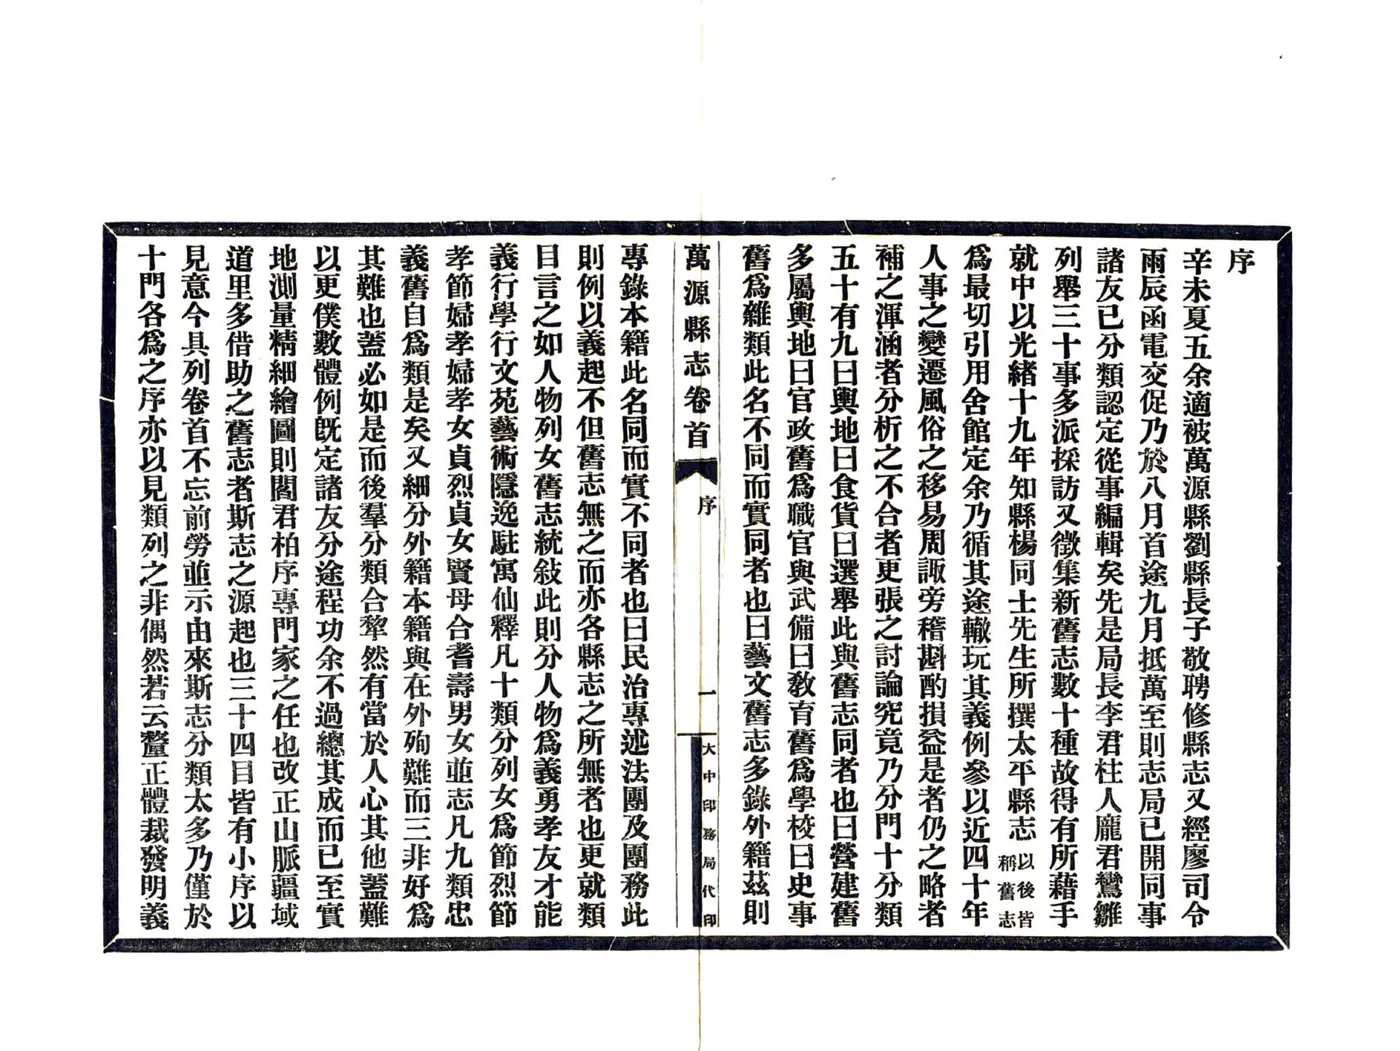 序
辛未夏五余適被萬源縣劉縣長子敬聘修縣志又經廖司令
雨辰函電交促乃於八月首途九月抵萬至則志局已開同事
諸友已分類認定從事編輯矣先是局長李君柱人龐君鸞雛
列舉三十事多派採訪又徵集新舊志數十種故得有所藉手
就中以光緒十九年知縣楊同士先生所撰太平縣志以後皆稱舊志
爲最切引用舍館定余乃循其途轍玩其義例參以近四十年
人事之變遷風俗之移易周諏旁稽斟酌損益是者仍之略者
補之渾涵者分析之不合者更張之討論究竟乃分門十分類
五十有九曰輿地曰食貨曰選舉此與舊志同者也曰營建舊
多屬輿地曰官政舊爲職官與武備曰敎育舊爲學校曰史事
舊爲雜類此名不同而實同者也曰藝文舊志多錄外籍茲則
萬源縣志卷首
序
一
大中印務局代印
專錄本籍此名同而實不同者也曰民治專述法團及團務此
則例以義起不但舊志無之而亦各縣志之所無者也更就類
目言之如人物列女舊志統敍此則分人物爲義勇孝友才能
義行學行文苑藝術隱逸駐寓仙釋凡十類分列女爲節烈節
孝節婦孝婦孝女貞烈貞女賢母合耆壽男女並志凡九類忠
義舊自爲類是矣又細分外籍本籍與在外殉難而三非好爲
其難也蓋必如是而後羣分類合犂然有當於人心其他蓋難
以更僕數體例旣定諸友分途程功余不過總其成而已至實
地測量精細繪圖則閻君柏序專門家之任也改正山脈疆域
道里多借助之舊志者斯志之源起也三十四目皆有小序以
見意今具列卷首不忘前勞並示由來斯志分類太多乃僅於
十門各爲之序亦以見類列之非偶然若云釐正體裁發明義